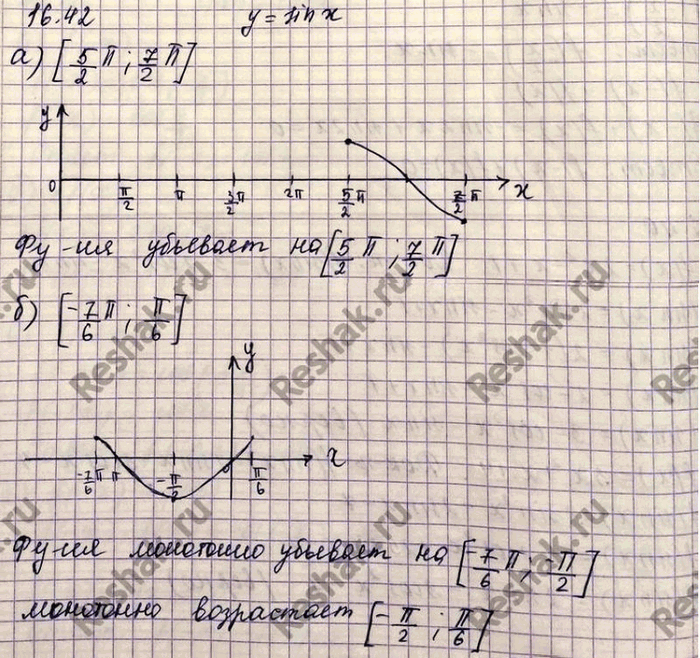 16.42 y = sin x
а) [5/2 π ; 7/2 π]
y
0 π/2 π 3/2 π 2π 5/2 π 7/2 π x
Фу-ция убывает на [5/2 π ; 7/2 π]
б) [-7/6 π ; π/6]
y
-7/6 π π -π/2 0 π/6 x
Фу-ция монотонно убывает на [-7/6 π ; -π/2]
монотонно возрастает [-π/2 ; π/6]
Reshak.ru
Reshak.ru
Reshak.ru
Reshak.ru
Reshak.ru